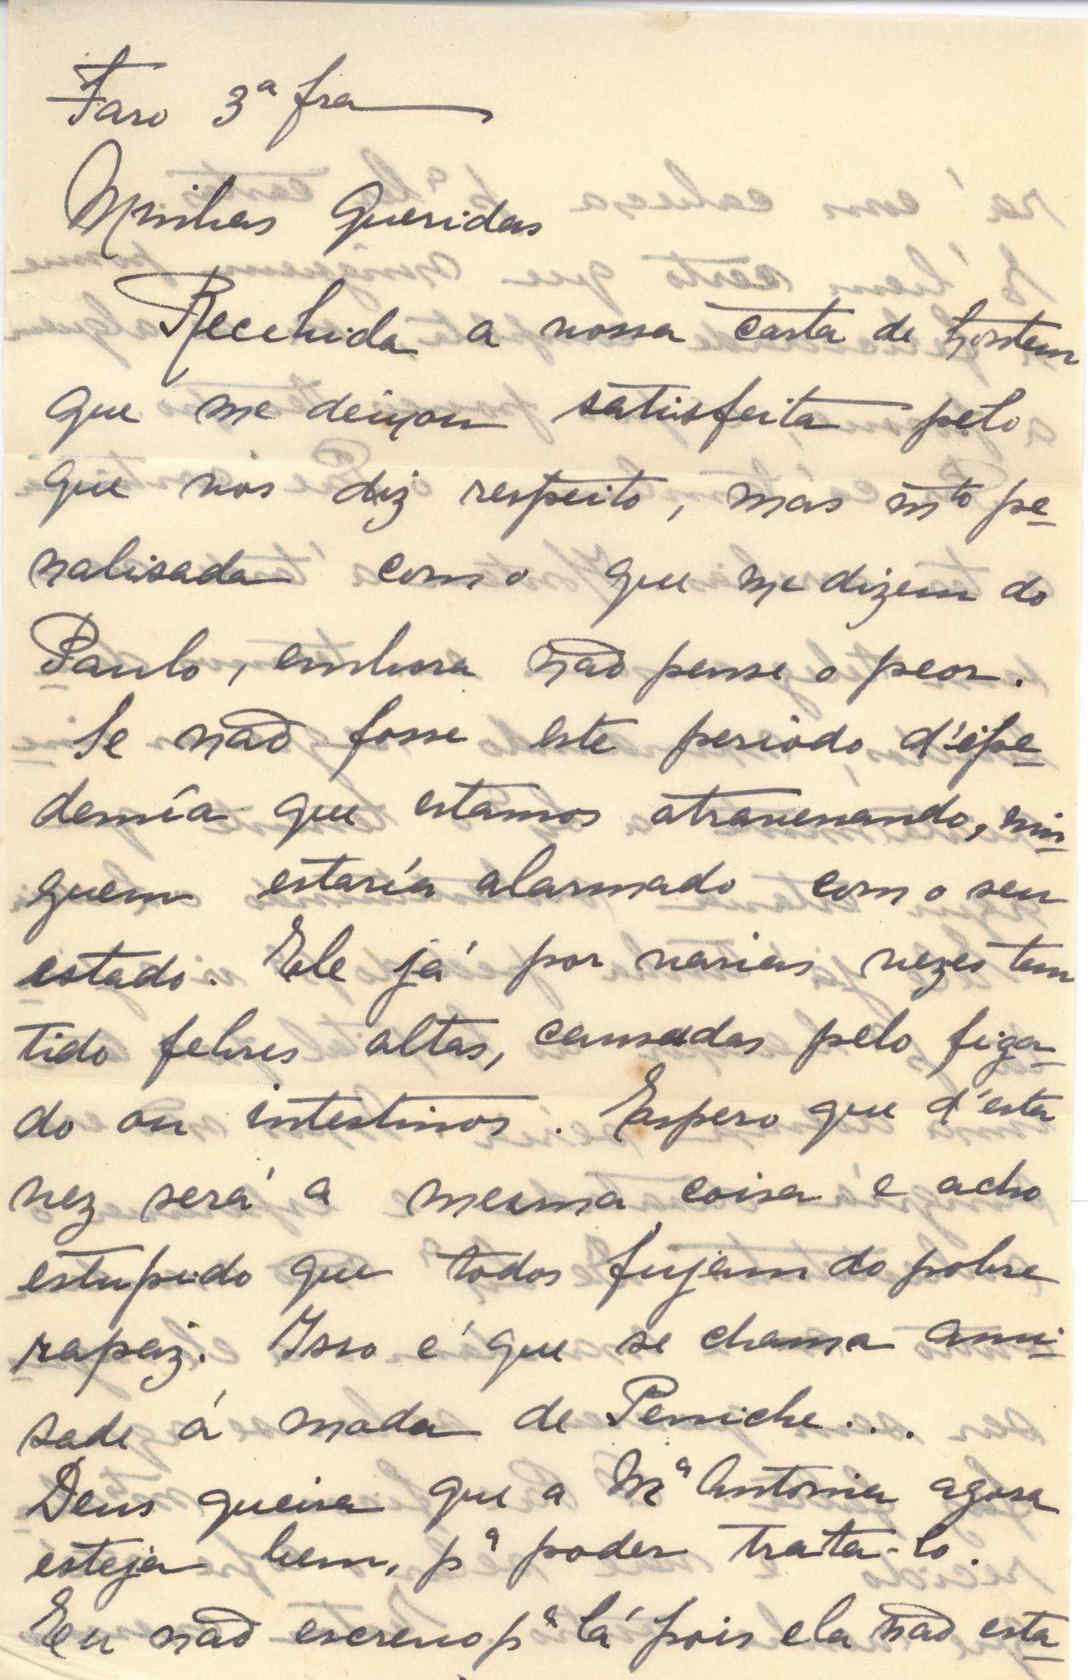 Faro 3ª fra
Minhas Queridas
Recebida a vossa carta de hontem
que me deixou satisfeita pelo
que vos diz respeito, mas mto pe-
nalisada com o que me dizem do
Paulo, embora não pense o peor.
Se não fosse este periodo d'épe-
demía que estamos atravessando, nin-
guem estaría alarmado com o seu
estado. Ele já por varias vezes tem
tido febres altas, causadas pelo figa-
do ou intestinos. Espero que d'esta
vez será a mesma coisa e acho
estupido que todos fujam do pobre
rapaz. Isso é que se chama ami-
sade á moda de Peniche...
Deus queira que a Mª Antonia agora
esteja bem, pª poder trata-lo.
Eu não escrevo pª lá pois ela não esta-